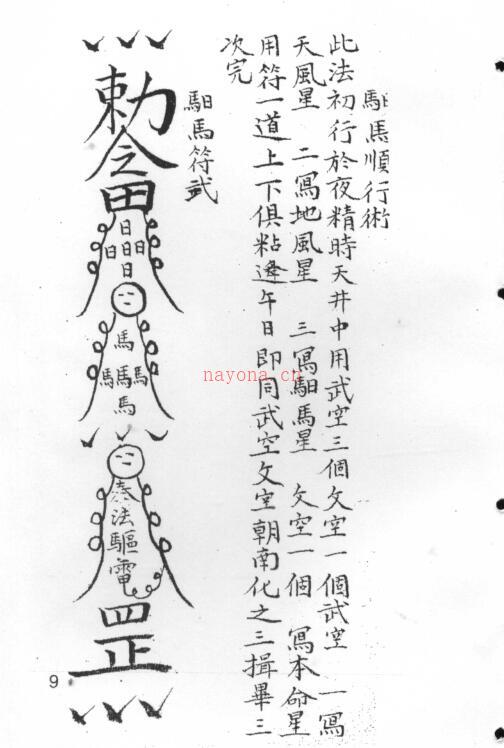 馹馬順行術
此法初行於夜精時天井中用武空三個文空一個武空 一寫
天風星 二寫地風星 三寫馹馬星 文空一個 寫本命星
用符一道上下俱粘逢午日即同武空文空朝南化之三揖畢三
次完
馹馬符式
勅令田
日
日日日
日
馬
馬馬馬
馬
奉法驅雷
罡
9
nayona.cn